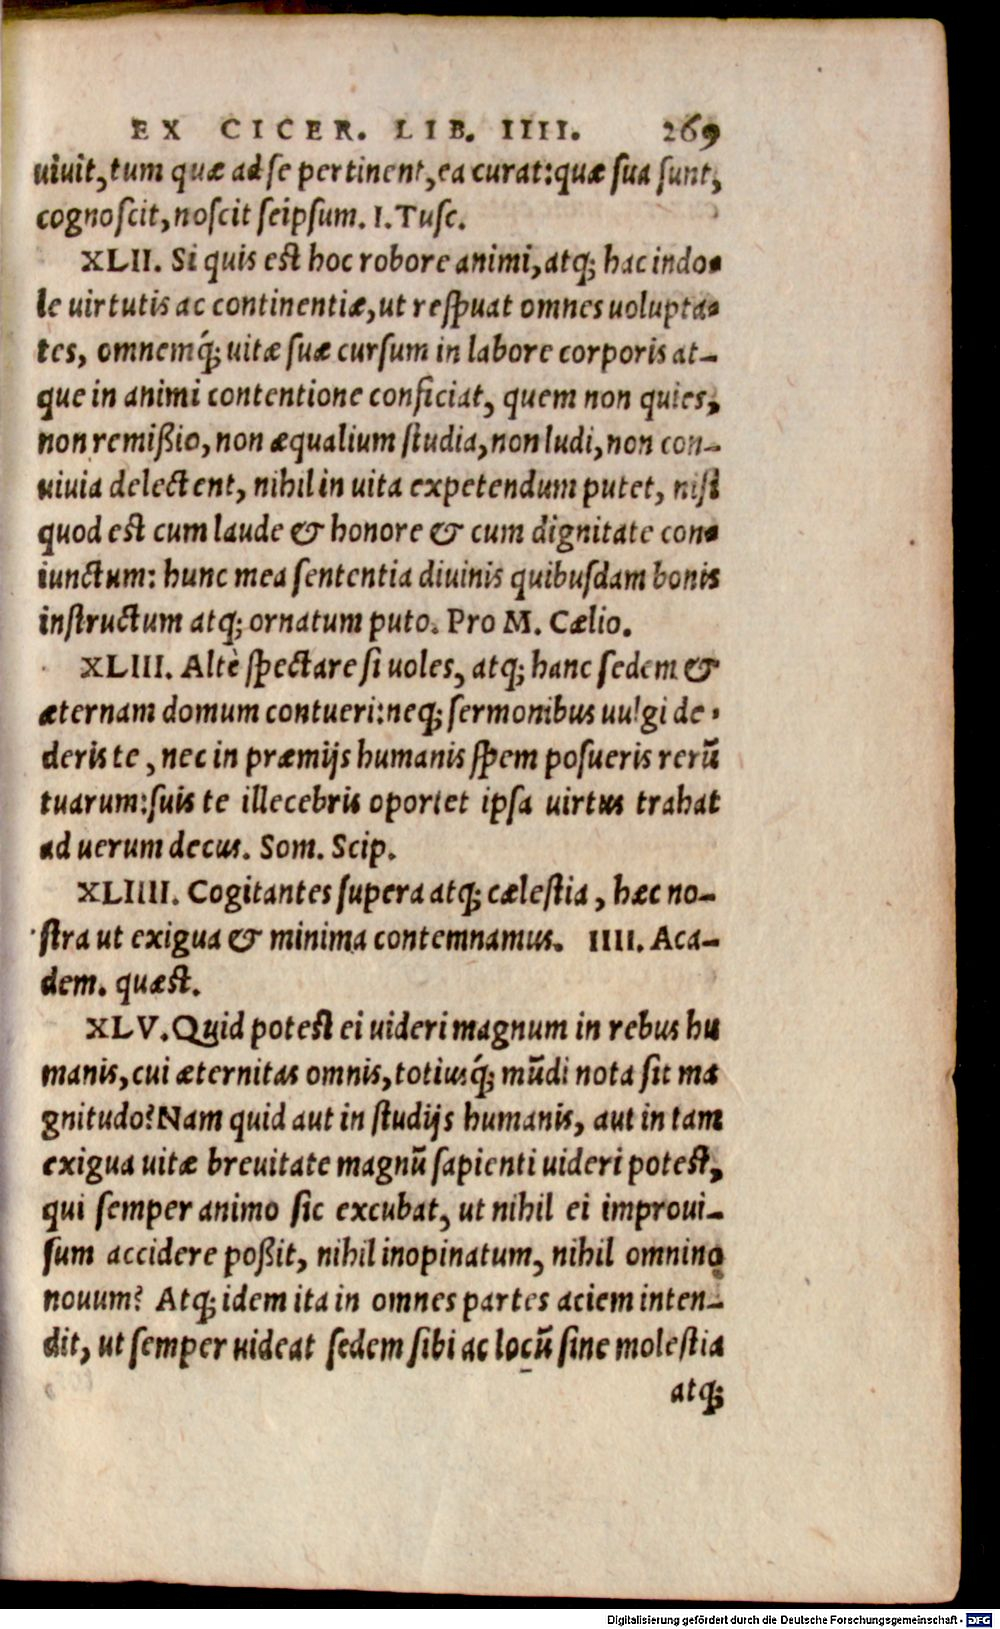 EX CICER. LIB. IIII. 269
uiuit, tum quæ ad se pertinent, ea curat: quæ sua sunt,
cognoscit, noscit seipsum. I. Tusc.
XLII. Si quis est hoc robore animi, atq; hac indo-
le uirtutis ac continentiæ, ut respuat omnes uolupta-
tes, omnemq́; uitæ suæ cursum in labore corporis at-
que in animi contentione conficiat, quem non quies,
non remißio, non æqualium studia, non ludi, non con-
uiuia delectent, nihil in uita expetendum putet, nisi
quod est cum laude & honore & cum dignitate con-
iunctum: hunc mea sententia diuinis quibusdam bonis
instructum atq; ornatum puto. Pro M. Cælio.
XLIII. Altè spectare si uoles, atq; hanc sedem &
æternam domum contueri: neq; sermonibus uulgi de-
deris te, nec in præmijs humanis spem posueris rerū
tuarum: suis te illecebris oportet ipsa uirtus trahat
ad uerum decus. Som. Scip.
XLIIII. Cogitantes supera atq; cælestia, hæc no-
stra ut exigua & minima contemnamus. IIII. Aca-
dem. quæst.
XLV. Quid potest ei uideri magnum in rebus hu
manis, cui æternitas omnis, totiusq́; mūdi nota sit ma
gnitudo? Nam quid aut in studijs humanis, aut in tam
exigua uitæ breuitate magnū sapienti uideri potest,
qui semper animo sic excubat, ut nihil ei improui-
sum accidere poßit, nihil inopinatum, nihil omnino
nouum? Atq; idem ita in omnes partes aciem inten-
dit, ut semper uideat sedem sibi ac locū sine molestia
atq;
Digitalisierung gefördert durch die Deutsche Forschungsgemeinschaft - DFG